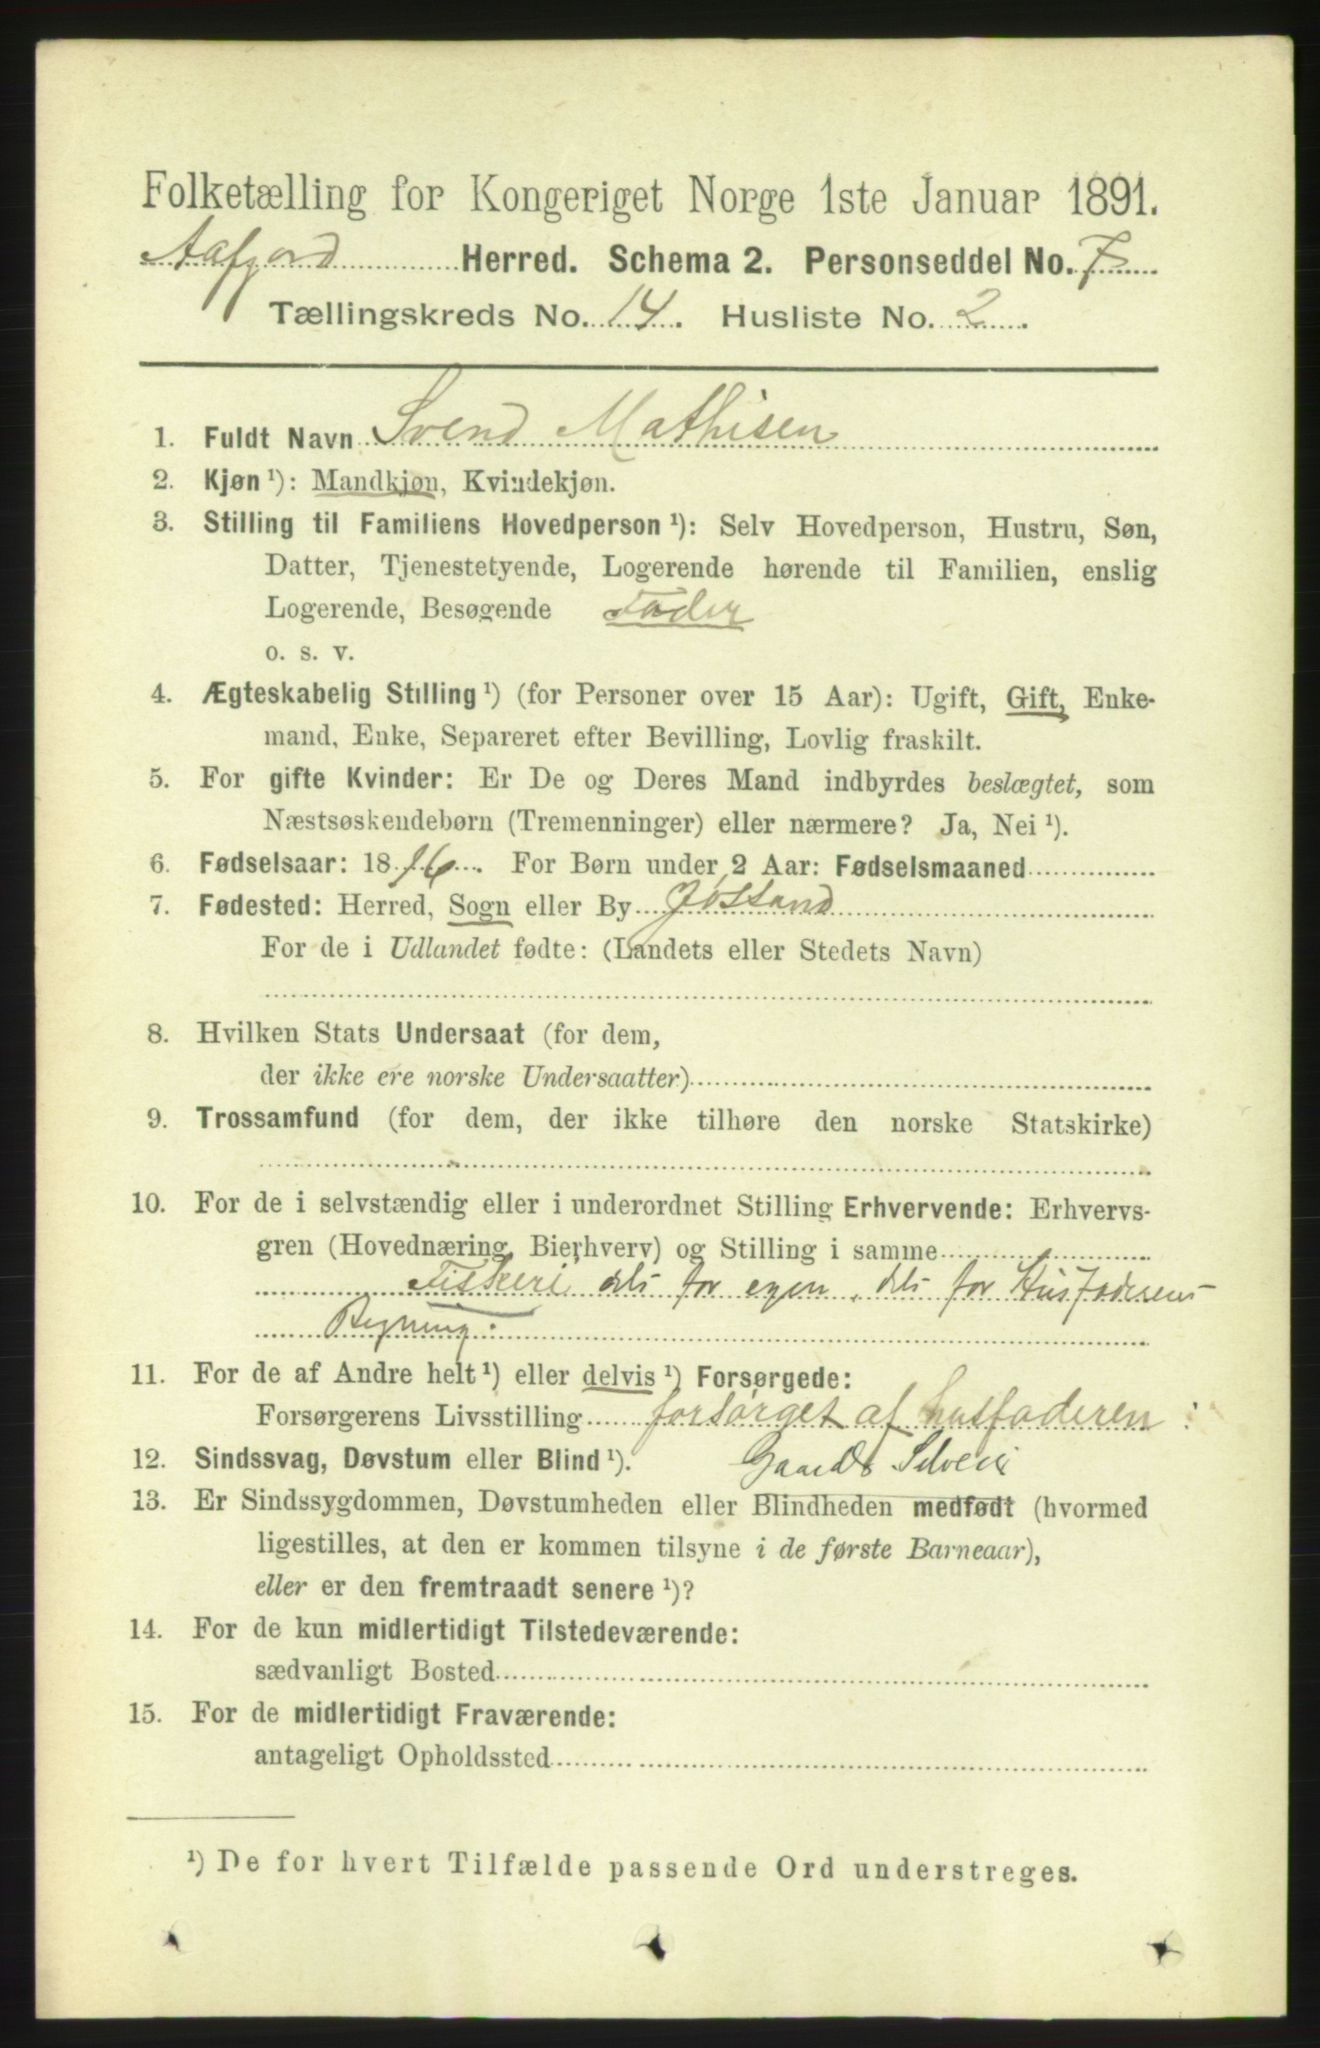 Folketælling for Kongeriget Norge 1ste Januar 1891.
Aafjord Herred. Schema 2. Personseddel No. 7
Tællingskreds No. 14. Husliste No. 2.
1. Fuldt Navn Svend Mathisen
2. Kjøn ¹): Mandkjøn, Kvindekjøn.
3. Stilling til Familiens Hovedperson ¹): Selv Hovedperson, Hustru, Søn,
Datter, Tjenestetyende, Logerende hørende til Familien, enslig
Logerende, Besøgende Fader
o. s. v.
4. Ægteskabelig Stilling ¹) (for Personer over 15 Aar): Ugift, Gift, Enke-
mand, Enke, Separeret efter Bevilling, Lovlig fraskilt.
5. For gifte Kvinder: Er De og Deres Mand indbyrdes beslægtet, som
Næstsøskendebørn (Tremenninger) eller nærmere? Ja, Nei ¹).
6. Fødselsaar: 1816. For Børn under 2 Aar: Fødselsmaaned
7. Fødested: Herred, Sogn eller By Jøssund
For de i Udlandet fødte: (Landets eller Stedets Navn)
8. Hvilken Stats Undersaat (for dem,
der ikke ere norske Undersaatter)
9. Trossamfund (for dem, der ikke tilhøre den norske Statskirke)
10. For de i selvstændig eller i underordnet Stilling Erhvervende: Erhvervs-
gren (Hovednæring, Bierhverv) og Stilling i samme
Fiskeri dels for egen, dels for Husfaderens
Regning.
11. For de af Andre helt ¹) eller delvis ¹) Forsørgede:
Forsørgerens Livsstilling forsørget af husfaderen:
12. Sindssvag, Døvstum eller Blind ¹). Gaard Selveier
13. Er Sindssygdommen, Døvstumheden eller Blindheden medfødt (hvormed
ligestilles, at den er kommen tilsyne i de første Barneaar),
eller er den fremtraadt senere ¹)?
14. For de kun midlertidigt Tilstedeværende:
sædvanligt Bosted
15. For de midlertidigt Fraværende:
antageligt Opholdssted
¹) De for hvert Tilfælde passende Ord understreges.